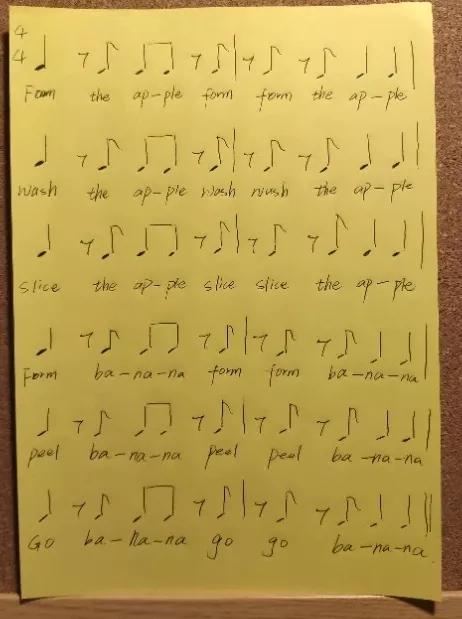 4
4
Form the ap-ple form form the ap-ple
wash the ap-ple wash wash the ap-ple
slice the ap-ple slice slice the ap-ple
Form ba-na-na form form ba-na-na
peel ba-na-na peel peel ba-na-na
Go ba-na-na go go ba-na-na